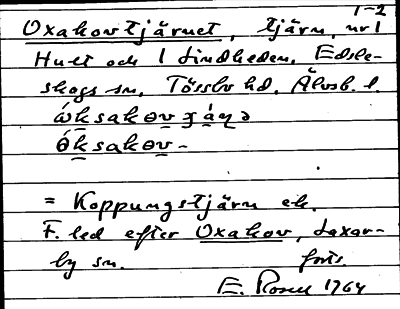 1-2
Oxakovtjärnet, tjärn, nr 1
Hult och 1 Lindheden, Edsle-
skogs sn, Tössbo hd, Älvsb. l.
= Koppungstjärn ek.
F. led efter Oxakov, Laxar-
by sn. forts.
E. Rosell 1964